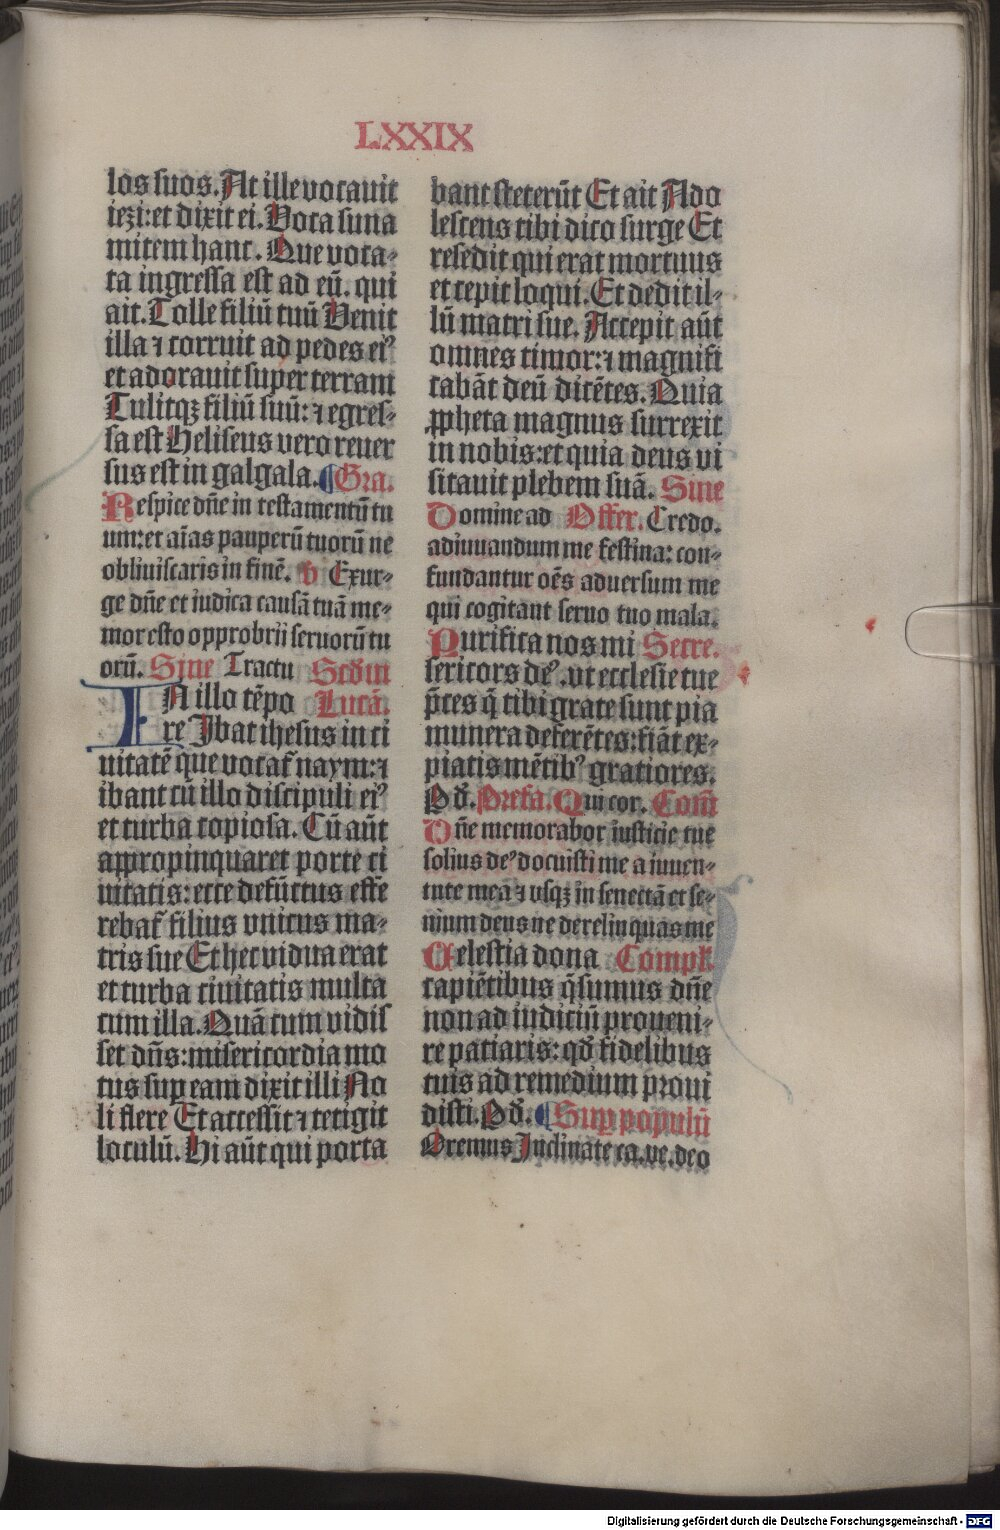 LXXIX
los suos. At ille vocavit
iezi: et dixit ei. Voca suna
mitem hanc. Que voca-
ta ingressa est ad eū. qui
ait. Tolle filiū tuū Venit
illa ⁊ corruit ad pedes ei⁹
et adoravit super terram
Tulitqꝫ filiū suū: ⁊ egres-
sa est Heliseus vero rever
sus est in galgala. Gra.
Respice dn̄e in testamentū tu
um: et aīas pauperū tuorū ne
obliviscaris in finē. v Exur-
ge dn̄e et iudica causā tuā me-
mor esto opprobrii servorū tu
orū. Sine Tractu Scd̄m
IN illo tēpo Lucā.
re Ibat ihesus in ci
vitatē que vocat᷑ naym: ⁊
ibant cū illo discipuli ei⁹
et turba copiosa. Cū aūt
appropinquaret porte ci
vitatis: ecce defūctus effe᷑
rebat᷑ filius vnicus ma-
tris sue Et hec vidua erat
et turba civitatis multa
cum illa. Quā cum vidis
set dn̄s: misericordia mo
tus suꝑ eam dixit illi No
li flere Et accessit ⁊ tetigit
loculū. Hi aūt qui porta
bant steterūt Et ait Ado
lescens tibi dico surge Et
resedit qui erat mortuus
et cepit loqui. Et dedit il-
lū matri sue. Accepit aūt
omnes timor: ⁊ magnifi
cabāt deū dicētes. Quia
ꝓpheta magnus surrexit
in nobis: et quia deus vi
sitavit plebem suā. Sine
Domine ad Offer. Credo.
adiuvandum me festina: con-
fundantur oēs adversum me
qui cogitant servo tuo mala.
Purifica nos mi Secre.
sericors de⁹. ut ecclesie tue
p̄ces q̄ tibi grate sunt pia
munera deferētes: fiāt ex-
piatis mētib⁹ gratiores.
Pd̄. Prefa. Qui cor. Com̄
Dn̄e memorabor iusticie tue
solius de⁹ docuisti me a iuven-
tute mea ⁊ vsqꝫ in senectā et se-
nium deus ne derelinquas me
Celestia dona Compl.
capiētibus q̄sumus dn̄e
non ad iudiciū proveni-
re patiaris: qd̄ fidelibus
tuis ad remedium provi
disti. Pd̄. Suꝑ populū
Oremus Inclinate ca. ve. deo
Digitalisierung gefördert durch die Deutsche Forschungsgemeinschaft - DFG